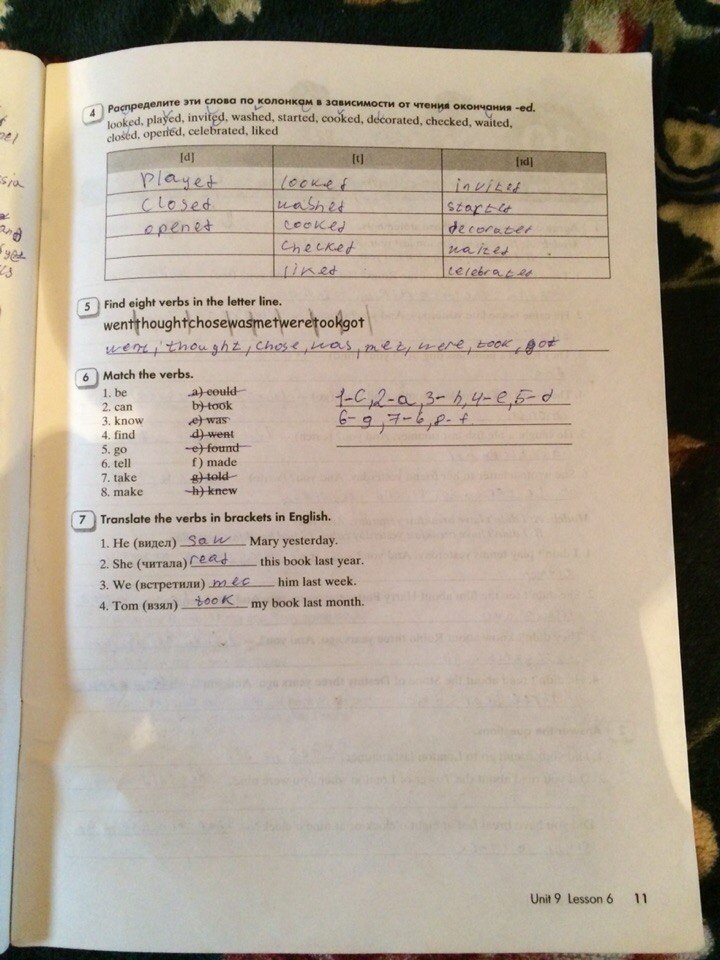 4 Распределите эти слова по колонкам в зависимости от чтения окончания -ed.
looked, played, invited, washed, started, cooked, decorated, checked, waited,
closed, opened, celebrated, liked
[d] [t] [ɪd]
played looked invited
closed washed started
opened cooked decorated
checked waited
liked celebrated
5 Find eight verbs in the letter line.
wentthoughtchosewasmetweretookgot
went, thought, chose, was, met, were, took, got
6 Match the verbs.
1. be a) could 1-c, 2-a, 3-h, 4-e, 5-d
2. can b) took 6-g, 7-b, 8-f
3. know c) was
4. find d) went
5. go e) found
6. tell f) made
7. take g) told
8. make h) knew
7 Translate the verbs in brackets in English.
1. He (видел) saw Mary yesterday.
2. She (читала) read this book last year.
3. We (встретили) met him last week.
4. Tom (взял) took my book last month.
Unit 9 Lesson 6 11